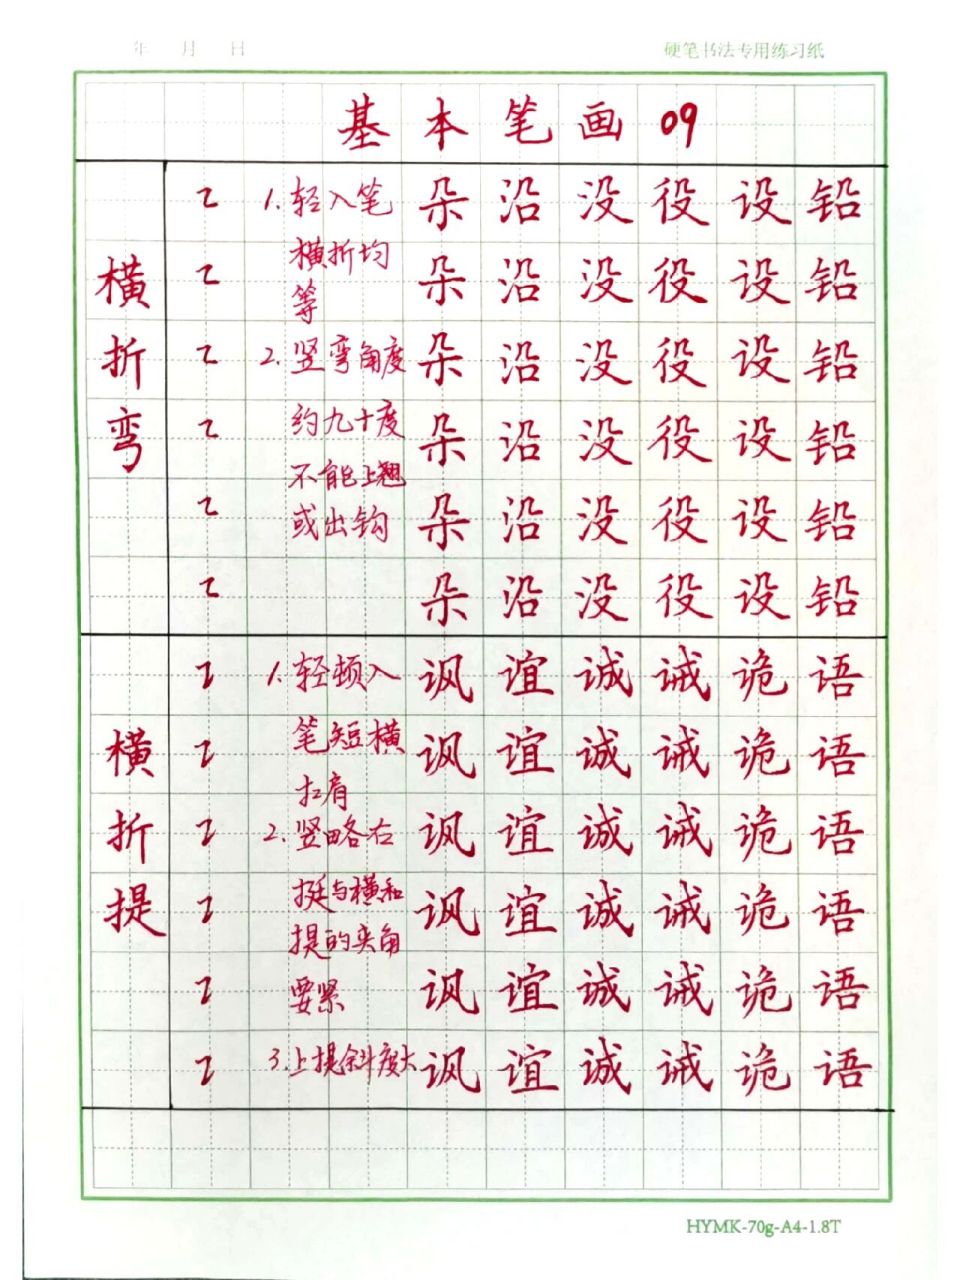 年 月 日 硬笔书法专用练习纸
基本笔画09
横折弯
1.轻入笔
横折均
等
2.竖弯角度
约九十度
不能上翘
或出钩
朵沿没役设铅
朵沿没役设铅
朵沿没役设铅
朵沿没役设铅
朵沿没役设铅
朵沿没役设铅
横折提
1.轻顿入
笔短横
扛肩
2.竖略右
挺与横和
提的夹角
要紧
3.上提斜度大
讽谊诚诫诡语
讽谊诚诫诡语
讽谊诚诫诡语
讽谊诚诫诡语
讽谊诚诫诡语
讽谊诚诫诡语
HYMK-70g-A4-1.8T